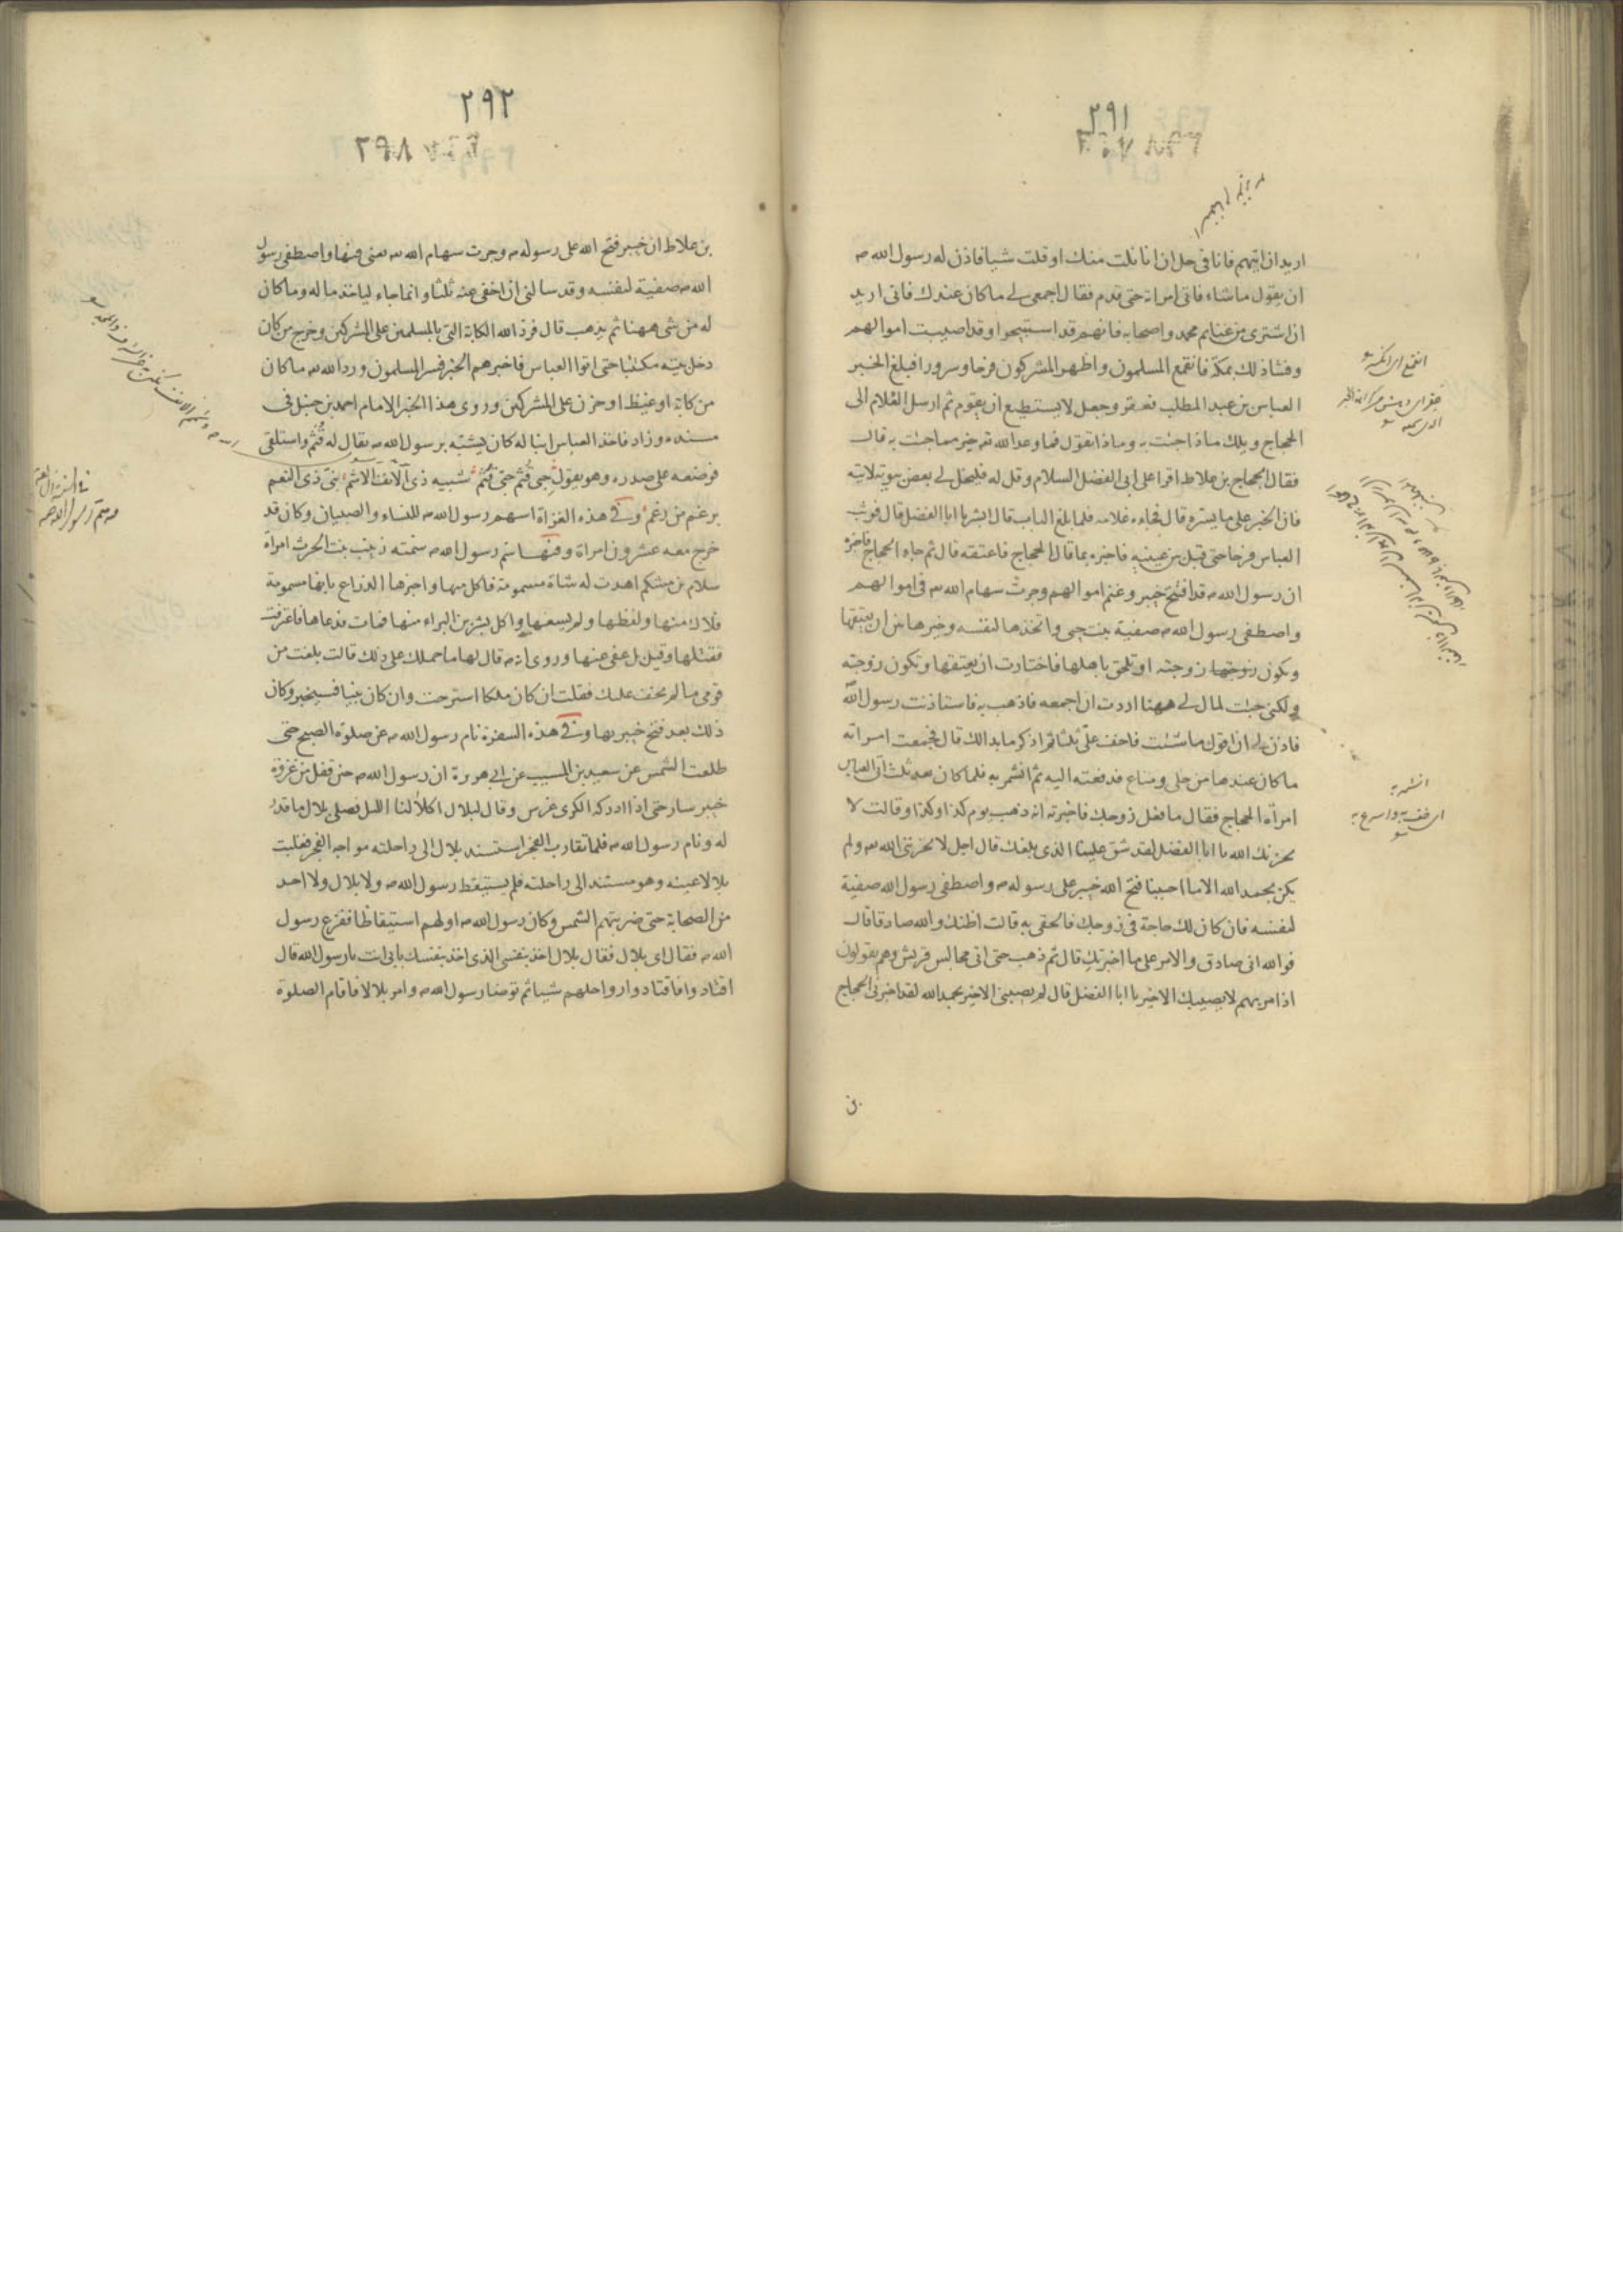 ٢٩١
اريد ان اتيهم فانا في حل ان انا نلت منك او قلت شيا فاذن له رسول الله صـ
ان يقول ماشاء فاتى امراته حتى قدم فقال اجمعي لى ما كان عندك فانى اريد
ان اشترى من غنايم محمد واصحابه فانهم قد استبيحوا وقد اصيبت اموالهم
وفشا ذلك بمكة فانقمع المسلمون واظهر المشركون فرحا وسرورا فبلغ الخبر
العباس بن عبد المطلب فعقر وجعل لا يستطيع ان يقوم ثم ارسل الغلام الى
الحجاج ويلك ماذا جئت به وماذا تقول فما وعد الله تع خير مما جئت به قال
فقال الحجاج بن علاط اقرا على ابى الفضل السلام وقل له فليخل لى بعض بيوته لاتيه
فان الخبر على ما يسره قال فجاءه غلامه فلما بلغ الباب قال ابشر يا ابا الفضل قال فوثب
العباس فرحا حتى قبل بين عينيه فاخبره بما قال الحجاج فاعتقه قال ثم جاه الحجاج فاخبره
ان رسول الله صـ قد افتتح خيبر وغنم اموالهم وجرت سهام الله تع فى اموالهم
واصطفى رسول الله صـ صفية بنت حيى واتخذها لنفسه وخيرها بين ان يعتقها
وتكون زوجته او تلحق باهلها فاختارت ان يعتقها وتكون زوجته
ولكنى جئت لمال لى ههنا اردت ان اجمعه فاذهب به فاستاذنت رسول الله
فاذن لى ان اقول ما شئت فاخف علىّ ثلثا ثم اذكر ما بدا لك قال فجمعت امراته
ما كان عندها من حلى ومتاع فدفعته اليه ثم انشمر به فلما كان بعد ثلث اتى العباس
امراة الحجاج فقال ما فعل زوجك فاخبرته انه ذهب يوم كذا وكذا وقالت لا
يحزنك الله يا ابا الفضل لقد شق علينا الذى بلغك قال اجل لا يحزننى الله تع ولم
يكن بحمد الله الا ما احببنا فتح الله خيبر على رسوله صـ واصطفى رسول الله صفية
لنفسه فان كان لك حاجة فى زوجك فالحقى به قالت اظنك والله صادقا قال
فوالله انى صادق والامر على ما اخبرتك قال ثم ذهب حتى اتى مجالس قريش وهم يقولون
اذا مر بهم لا يصيبك الا خير يا ابا الفضل قال لم يصيبنى الا خير بحمد الله لقد اخبرنى الحجاج
بن
انشمر به
اى خف به واسرع به
٢٩٢
٢٩٨
بن علاط ان خيبر فتح الله على رسوله صـ وجرت سهام الله تع فيها واصطفى رسول
الله صـ صفية لنفسه وقد سالنى ان اخفى عنه ثلثا وانما جاء لياخذ ماله وما كان
له من شى ههنا ثم يذهب قال فرد الله الكابة التى بالمسلمين على المشركين وخرج من كان
دخل بيته مكتئبا حتى اتوا العباس فاخبرهم الخبر فسر المسلمون ورد الله تع ما كان
من كابة او غيظ او حزن على المشركين وروى هذا الخبر الامام احمد بن حنبل فى
مسنده وزاد فاخذ العباس ابنا له كان يشبه برسول الله صـ يقال له قُثَم واستلقى
فوضعه على صدره وهو يقول حِبى قُثم حتى قُثَم شبيه ذى الانف الاشم نبى ذى النعم
برغم من رغم وفى هذه الغزاة اسهم رسول الله صـ للنساء والصبيان وكان قد
خرج معه عشرون امراة وفيها سم رسول الله صـ سمته زينب بنت الحرث امراة
سلام بن مشكم اهدت له شاة مسمومة فاكل منها واخبرها الذراع بانها مسمومة
فلاك منها ولفظها ولم يسغها واكل بشر بن البراء منها فمات فدعاها فاعترفت
فقتلها وقيل بل عفى عنها وروى انه صـ قال لها ما حملك على ذلك قالت بلغت من
قومى ما لم يخف عليك فقلت ان كان ملكا استرحت وان كان نبيا فسيخبر وكان
ذلك بعد فتح خيبر بها وفى هذه السفرة نام رسول الله صـ عن صلوة الصبح حتى
طلعت الشمس عن سعيد بن المسيب عن ابى هريرة ان رسول الله صـ حين قفل من غزوة
خيبر سار حتى اذا ادركه الكرى عرس وقال لبلال اكلأ لنا الليل فصلى بلال ما قدر
له ونام رسول الله صـ فلما تقارب الفجر استسند بلال الى راحلته مواجه الفجر فغلبت
بلالا عينه وهو مستند الى راحلته فلم يستيقظ رسول الله صـ ولا بلال ولا احد
من الصحابة حتى ضربتهم الشمس وكان رسول الله صـ اولهم استيقاظا ففزع رسول
الله صـ فقال اى بلال فقال بلال اخذ بنفسى الذى اخذ بنفسك بابى انت يا رسول الله قال
اقتادوا فاقتادوا رواحلهم شيا ثم توضا رسول الله صـ وامر بلالا فاقام الصلوة